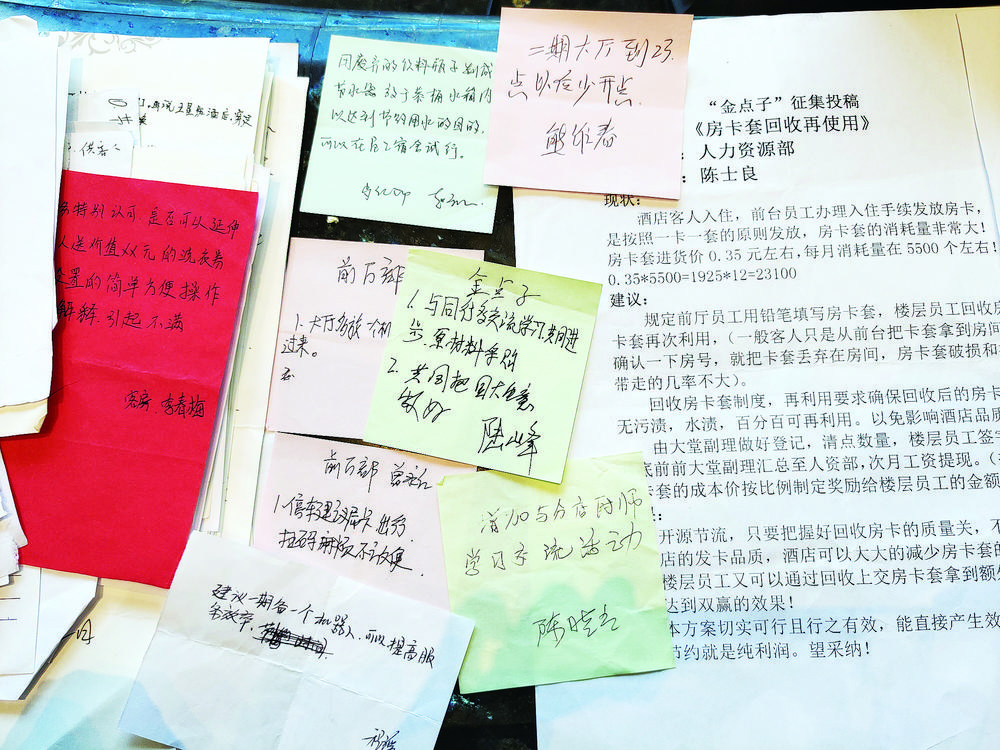 供客
特别认可 是否可以延伸
送价值XX元的洗衣券
设置的简单方便操作
解释引起不满
客房.李春梅
用废弃的饮料瓶子制成
节水器放于恭桶水箱内
以达到节约用水的目的.
可以在员工宿舍试行。
二期大厅到23
点以后少开点.
熊维春
前厅部
1.大厅多放
过来。
金点子
1.与同行多交流学习共同进
步.原材料采购
2.共同把回大生意
做好
陆山峰
前厅部
1.停车建议房卡
扫码麻烦不方便.
增加与分店厨师
学习交流活动
陈晓立
建议一期备一个机器人.可以提高服
务效率.
“金点子”征集投稿
《房卡套回收再使用》
：人力资源部
：陈士良
现状：
酒店客人入住，前台员工办理入住手续发放房卡，
是按照一卡一套的原则发放，房卡套的消耗量非常大！
房卡套进货价0.35元左右，每月消耗量在5500个左右！
0.35*5500=1925*12=23100
建议：
规定前厅员工用铅笔填写房卡套，楼层员工回收房
卡套再次利用，（一般客人只是从前台把卡套拿到房间
确认一下房号，就把卡套丢弃在房间，房卡套破损和
带走的几率不大）。
回收房卡套制度，再利用要求确保回收后的房卡
无污渍，水渍，百分百可再利用。以免影响酒店品质
由大堂副理做好登记，清点数量，楼层员工签字
底前前大堂副理汇总至人资部，次月工资提现。（
卡套的成本价按比例制定奖励给楼层员工的金额
：
开源节流，只要把握好回收房卡的质量关，不
店的发卡品质，酒店可以大大的减少房卡套的
楼层员工又可以通过回收上交房卡套拿到额外
达到双赢的效果！
本方案切实可行且行之有效，能直接产生效
节约就是纯利润。望采纳！